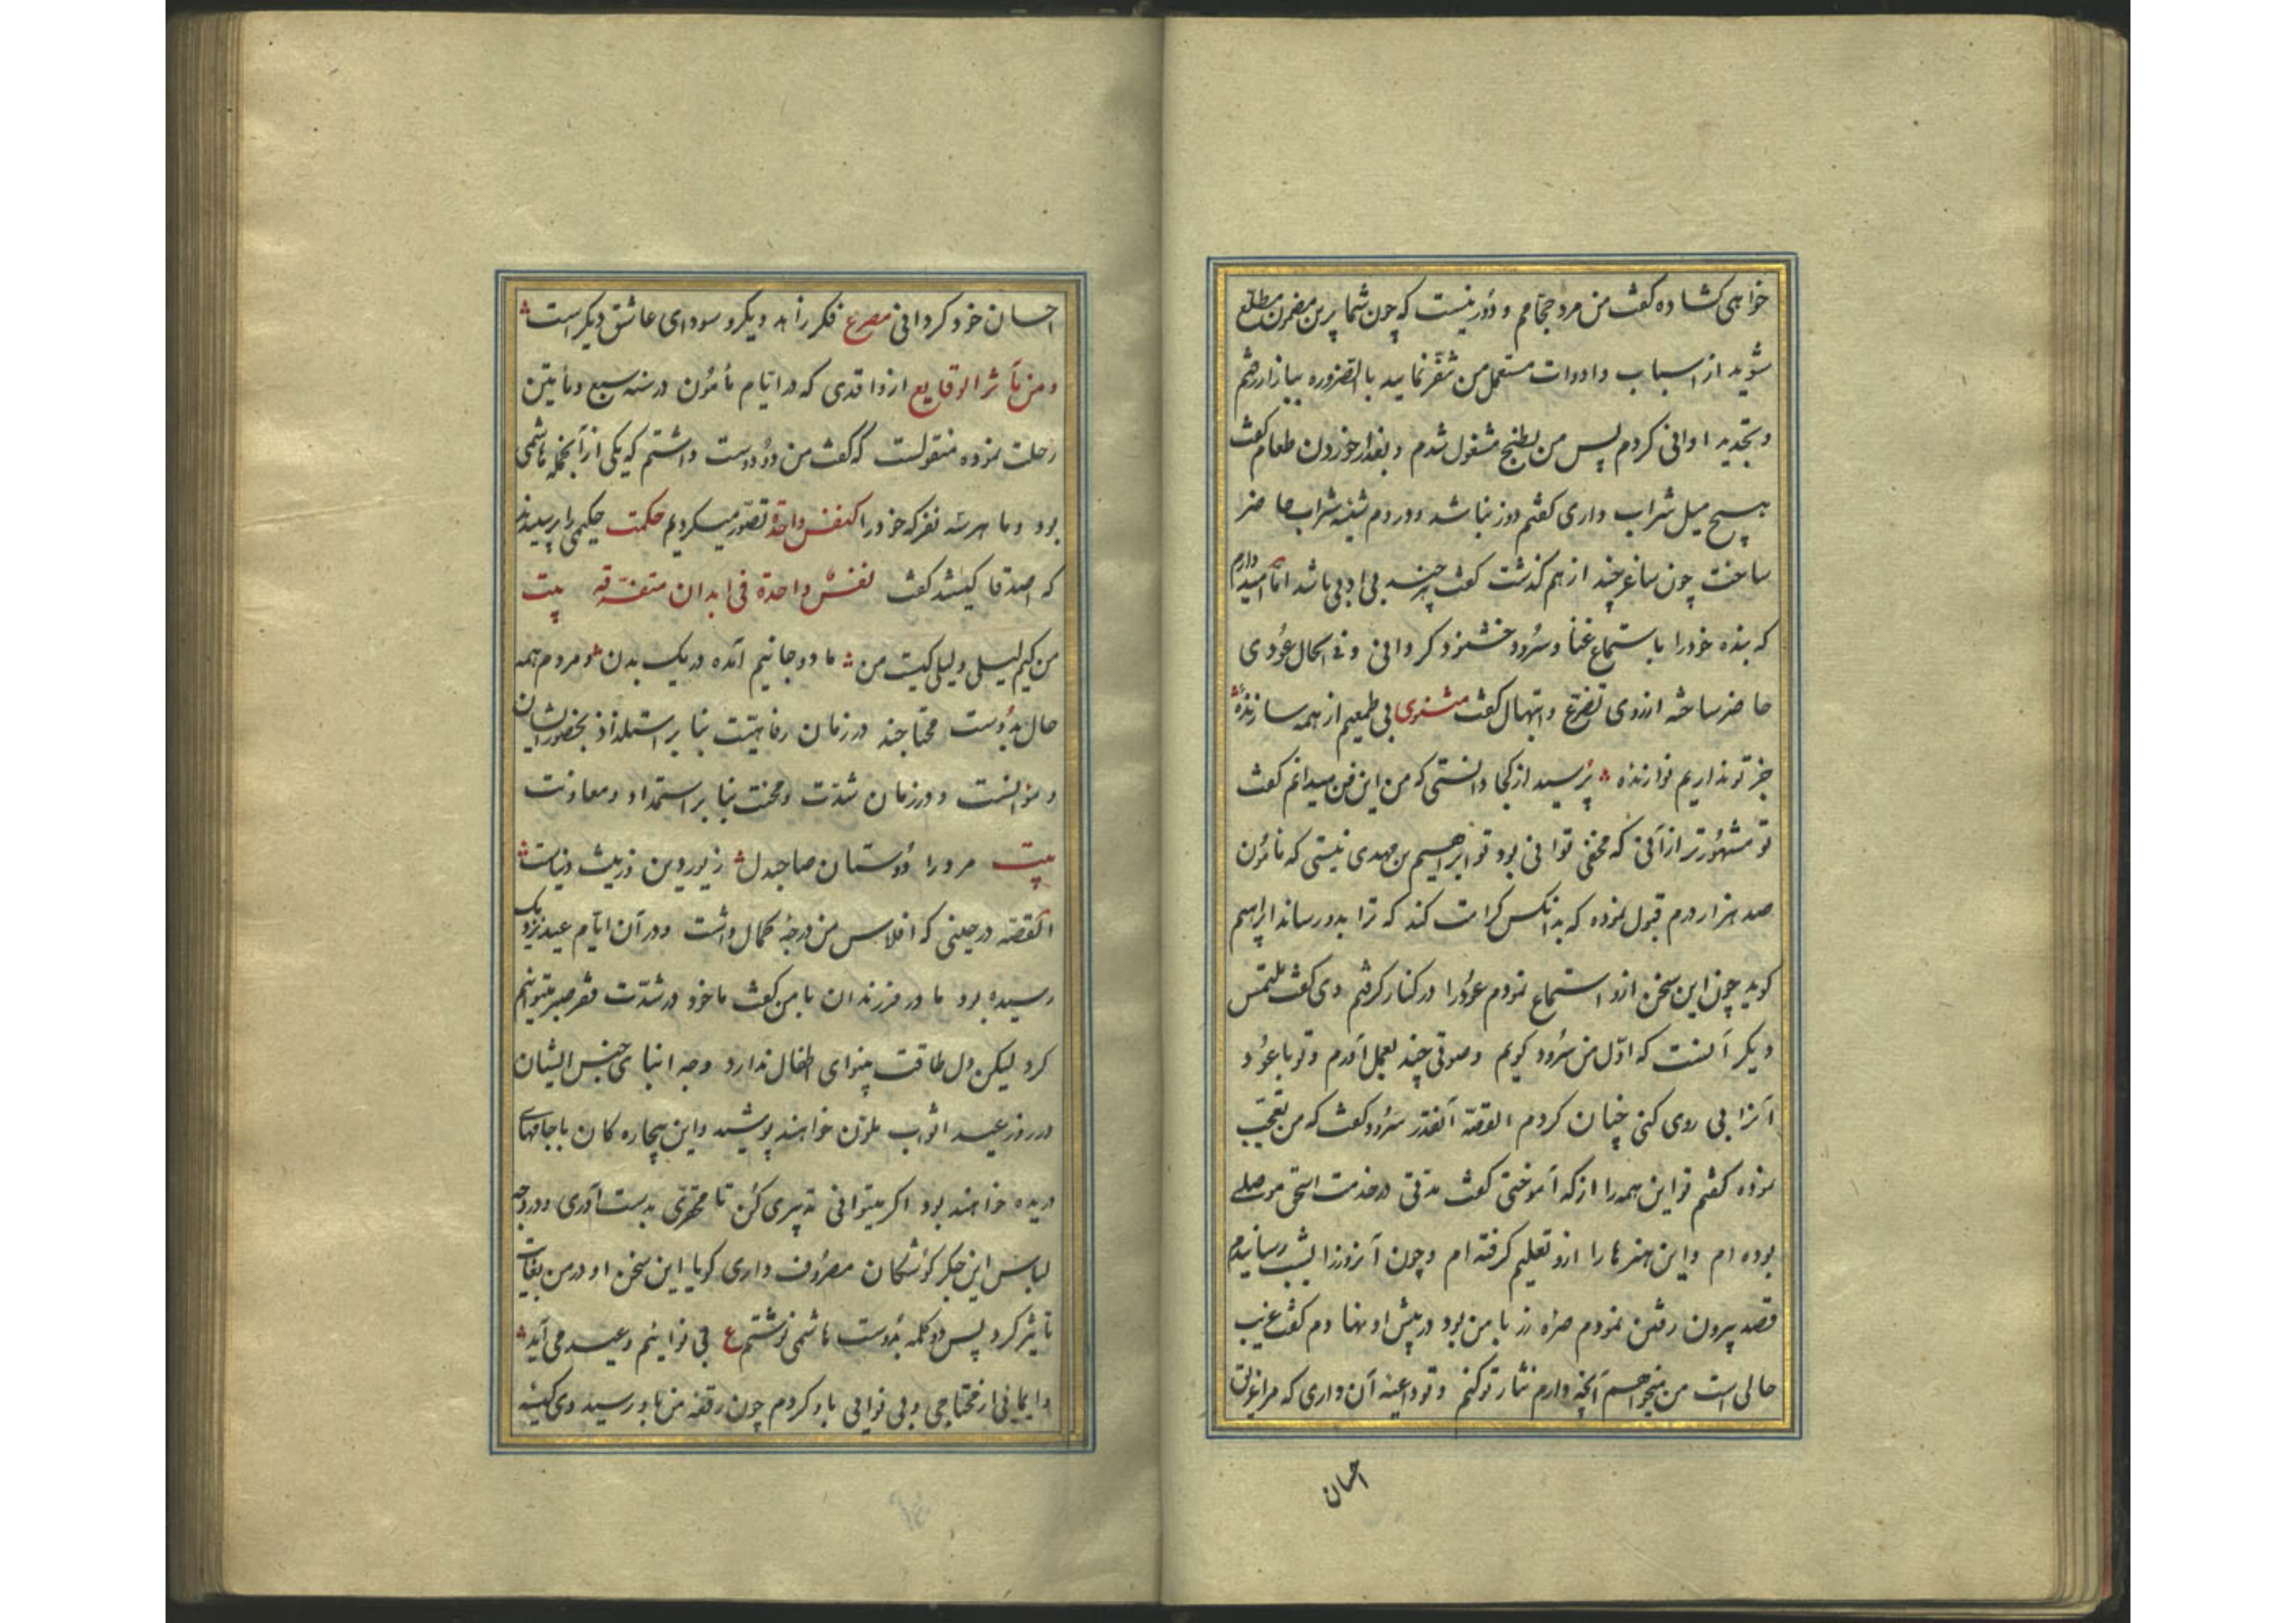 خواهی کشاده کفت من مرد حجّامم و دور نیست که چون شما پرین مضمون مطلع
شوید از اسباب وادوات مستعمل من متنفر نمایید بالضروره ببازار رفتم
و تجدید اوانی کردم پس من بطبخ مشغول شدم و بعد از خوردن طعام کفت
هیچ میل شراب داری کفتم دور نباشد و در دم شیشه شراب حاضر
ساخت چون ساغر چند از هم کذشت کفت هر چند بی ادبی باشد امّا امید دارم
که بنده خود را باستماع غنا و سرود خشنود کردانی و فی الحال عودی
حاضر ساخته از روی تضرّع و ابتهال کفت مثنوی بی طمعیم از همه سازنده
جز تو نداریم نوازنده پرسید از کجا دانستی که من این فن میدانم کفت
تو مشهورتر از آنی که مخفی توانی بود تو ابراهیم بن مهدی نیستی که مأمون
صد هزار درم قبول نموده که بدانکس کرامت کند که ترا بدو رساند ابراهیم
کوید چون این سخن ازو استماع نمودم عود را در کنار کرفتم وی کفت ملتمس
دیکر آنست که اوّل من سرود کویم و صوتی چند بعمل آورم و تو با عود
آنرا بی روی کنی چنان کردم القصّه آنقدر سرود کفت که من تعجّب
نموده کفتم تو این همه را از که آموختی کفت مدتی در خدمت اسحق موصلی
بوده ام و این هنرها را ازو تعلیم کرفته ام و چون آنروز را بشب رسانیدم
قصد بیرون رفتن نمودم صرّه زر با من بود در پیش او نهادم کفت غریب
حالی است من میخواهم آنچه دارم نثار تو کنم و تو داعیه آن داری که مرا غریق
احسان
احسان خود کردانی مصرع فکر زاهد دیکر و سودای عاشق دیکر است
و من مآثر الوقایع از واقدی که در ایّام مأمون در سنه سبع و مأتین
رحلت نموده منقولست که کفت من دو دوست داشتم که یکی از آنجمله هاشمی
بود و ما هر سه نفر که خود را کنفس واحدة تصوّر میکردیم حکمت حکیمی را پرسیدند
که اصدقا کیستند کفت نفس واحدة فی ابدان متفرقه بیت
من کیم لیلی و لیلی کیست من ما دو جانیم آمده در یک بدن و مردم همه
حال بدوست محتاجند در زمان رفاهیّت بنا بر استلذاذ بحضور ایشان
و موانست و در زمان شدّت و محنت بنا بر استمداد و معاونت
بیت مرد را دوستان صاحبدل زیور دین و زینت دنیاست
القصّه در حینی که افلاس من درجۀ کمال داشت و در آن ایّام عید نزدیک
رسیده بود مادر فرزندان با من کفت ما خود در شدّت فقر صبر میتوانیم
کرد لیکن دل طاقت بینوای اطفال ندارد و چه ابنای جنس ایشان
در روز عید اثواب ملوّن خواهند پوشید و این بیچاره کان با جامهای
دریده خواهند بود اکر میتوانی تدبیری کن تا محقّری بدست آوری و در وجه
لباس این جکر کوشکان مصروف داری کویا این سخن او در من بغایت
تأثیر کرد پس دو کلمه بدوست هاشمی نوشتم ع بی نوایم و عید می آید
و ایمائی از محتاجی و بی نوایی یاد کردم چون رقعه من باو رسید وی کیسه